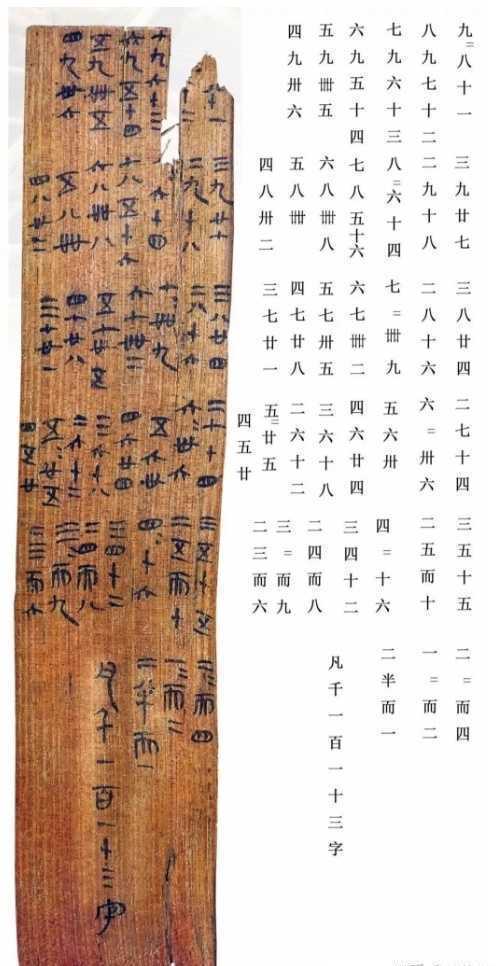 九＝八十一
八九七十二
七九六十三
六九五十四
五九卌五
四九卅六
三九廿七
二九十八
八＝六十四
七八五十六
六八卌八
五八卌
四八卅二
三八廿四
二八十六
七＝卌九
六七卌二
五七卅五
四七廿八
三七廿一
二七十四
六＝卅六
五六卅
四六廿四
三六十八
二六十二
五＝廿五
四五廿
三五十五
二五而十
四＝十六
三四十二
二四而八
三＝而九
二三而六
二＝而四
一＝而二
二半而一
凡千一百一十三字